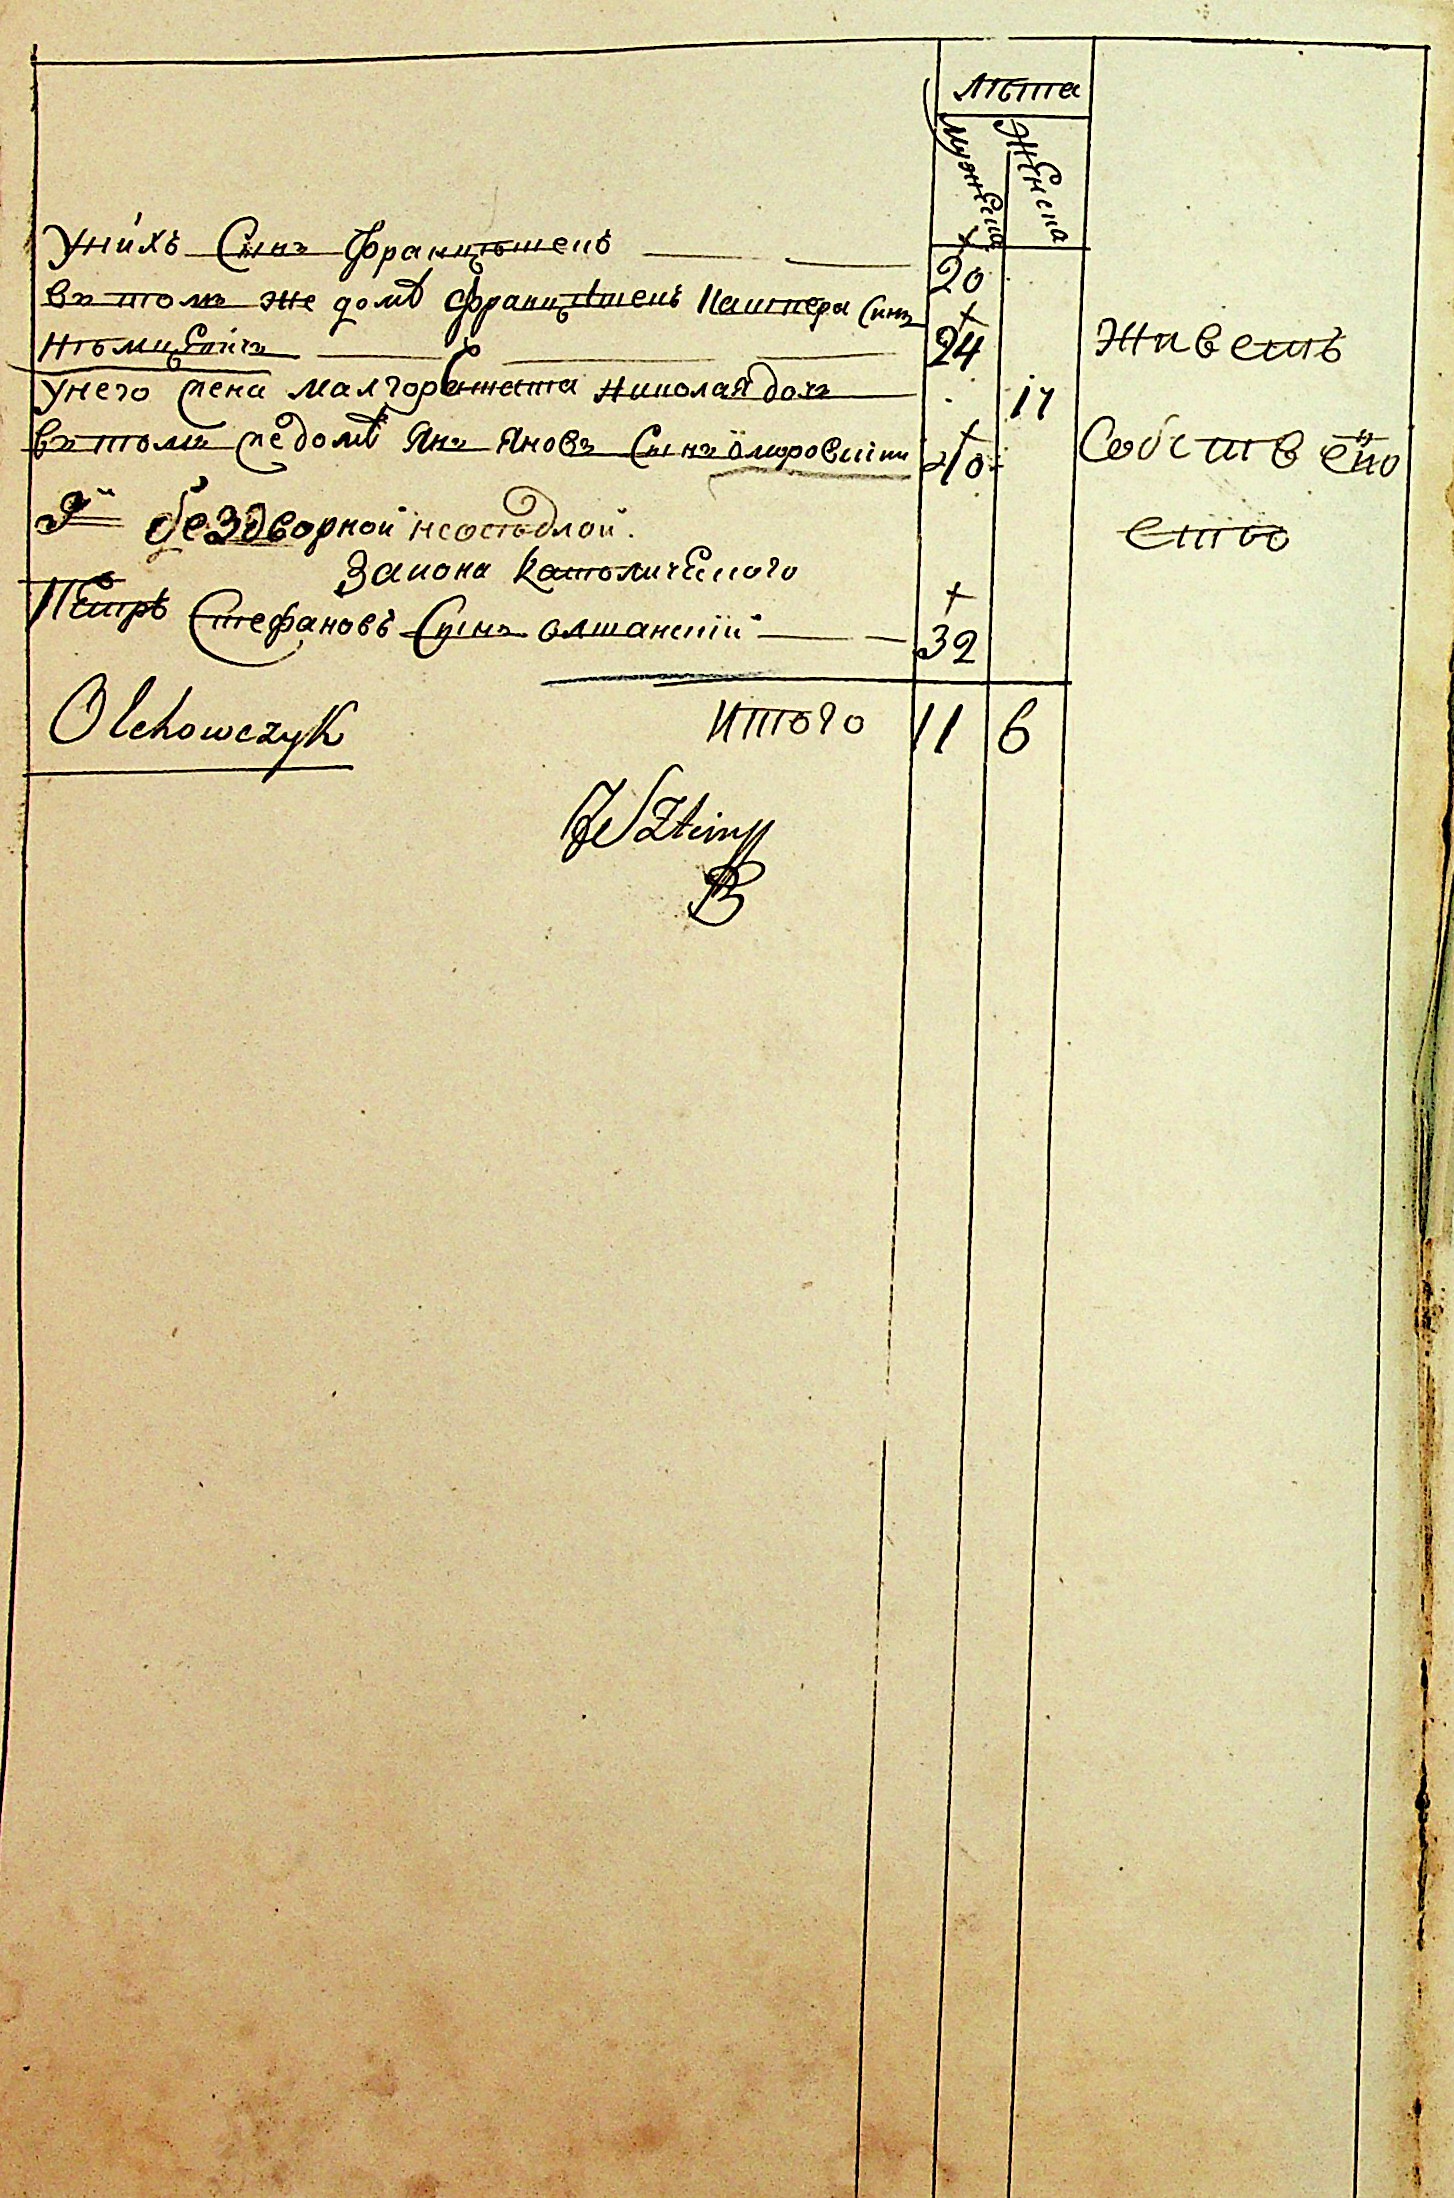 лѣта
мужеска женска
У нихъ Сынъ Францѣшекъ 20
въ томъ же домѣ Францѣшекъ Кашпера Сынъ
24 Живетъ
У него жена Малгоржата Николая дочъ 17
въ томъ же домѣ Янъ Яновъ Сынъ 40 Собствено
й бездворной неосѣдлой ство
Закона католического
Пётръ Стефановъ Сынъ олшанскїй 32
Olchowczyk итого 11 6